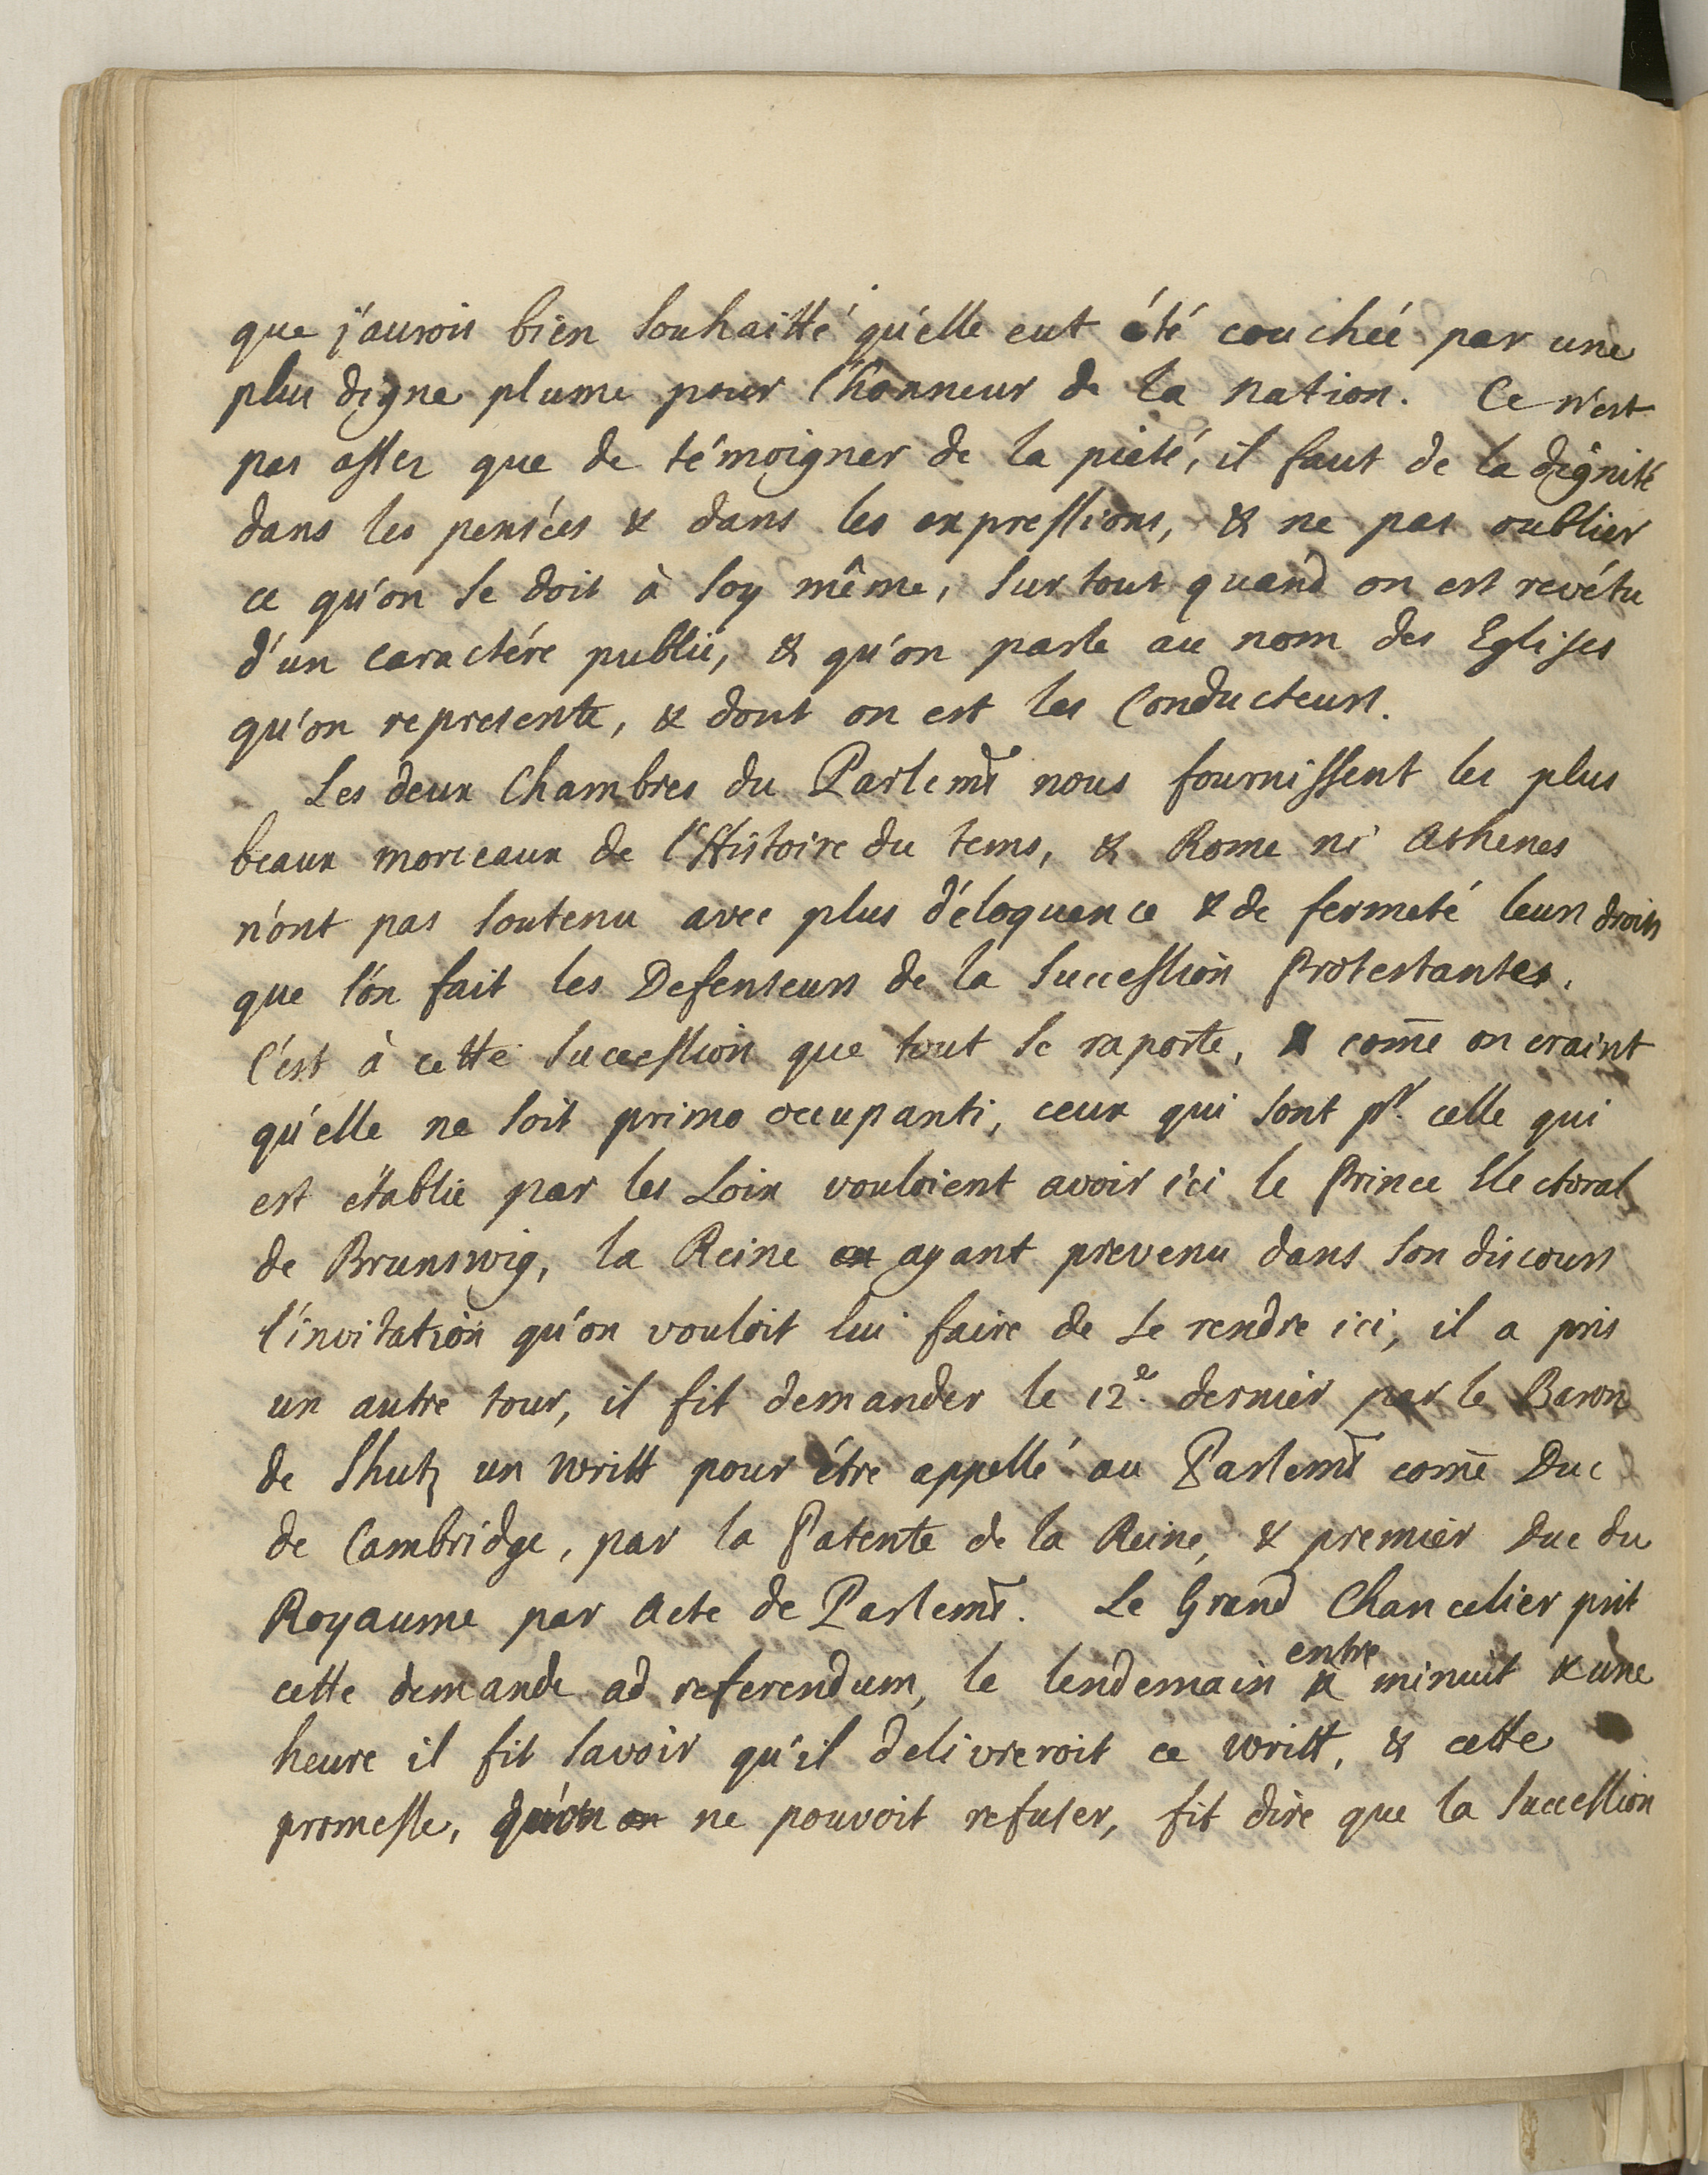 que j'aurois bien souhaitté qu'elle eut été couchée par une
plus digne plume pour l'honneur de la nation. Ce n'est
pas assez que de témoigner de la pieté, il faut de la dignité
dans les pensées & dans les expressions, & ne pas oublier
ce qu'on se doit à soy même, surtout quand on est revétu
d'un caractére public, & qu'on parle au nom des Eglises
qu'on represente, & dont on est les Conducteurs.
Les deux Chambres du Parlemt nous fournissent les plus
beaux morceaux de l'Histoire du tems, & Rome ni Athenes
n'ont pas soutenu avec plus d'éloquence & de fermeté leurs droits
que l'on fait les Defenseurs de la succession Protestante.
C'est à cette succession que tout se raporte, & com̄e on craint
qu'elle ne soit primo occupanti, ceux qui sont pr. celle qui
est établie par les Loix vouloient avoir ici le Prince Electoral
de Brunswig, la Reine ayant prevenu dans son discours
l'invitation qu'on vouloit lui faire de se rendre ici, il a pris
un autre tour, il fit demander le 12e. dernier par le Baron
de Shutz un writt pour étre appellé au Parlemt com̄e Duc
de Cambridge, par la Patente de la Reine, & premier Duc du
Royaume par Acte de Parlemt. Le Grand Chancelier prit
cette demande ad referendum, le lendemain entre minuit & une
heure il fit savoir qu'il delivreroit ce writt, & cette
promesse, qu'on ne pouvoit refuser, fit dire que la succession